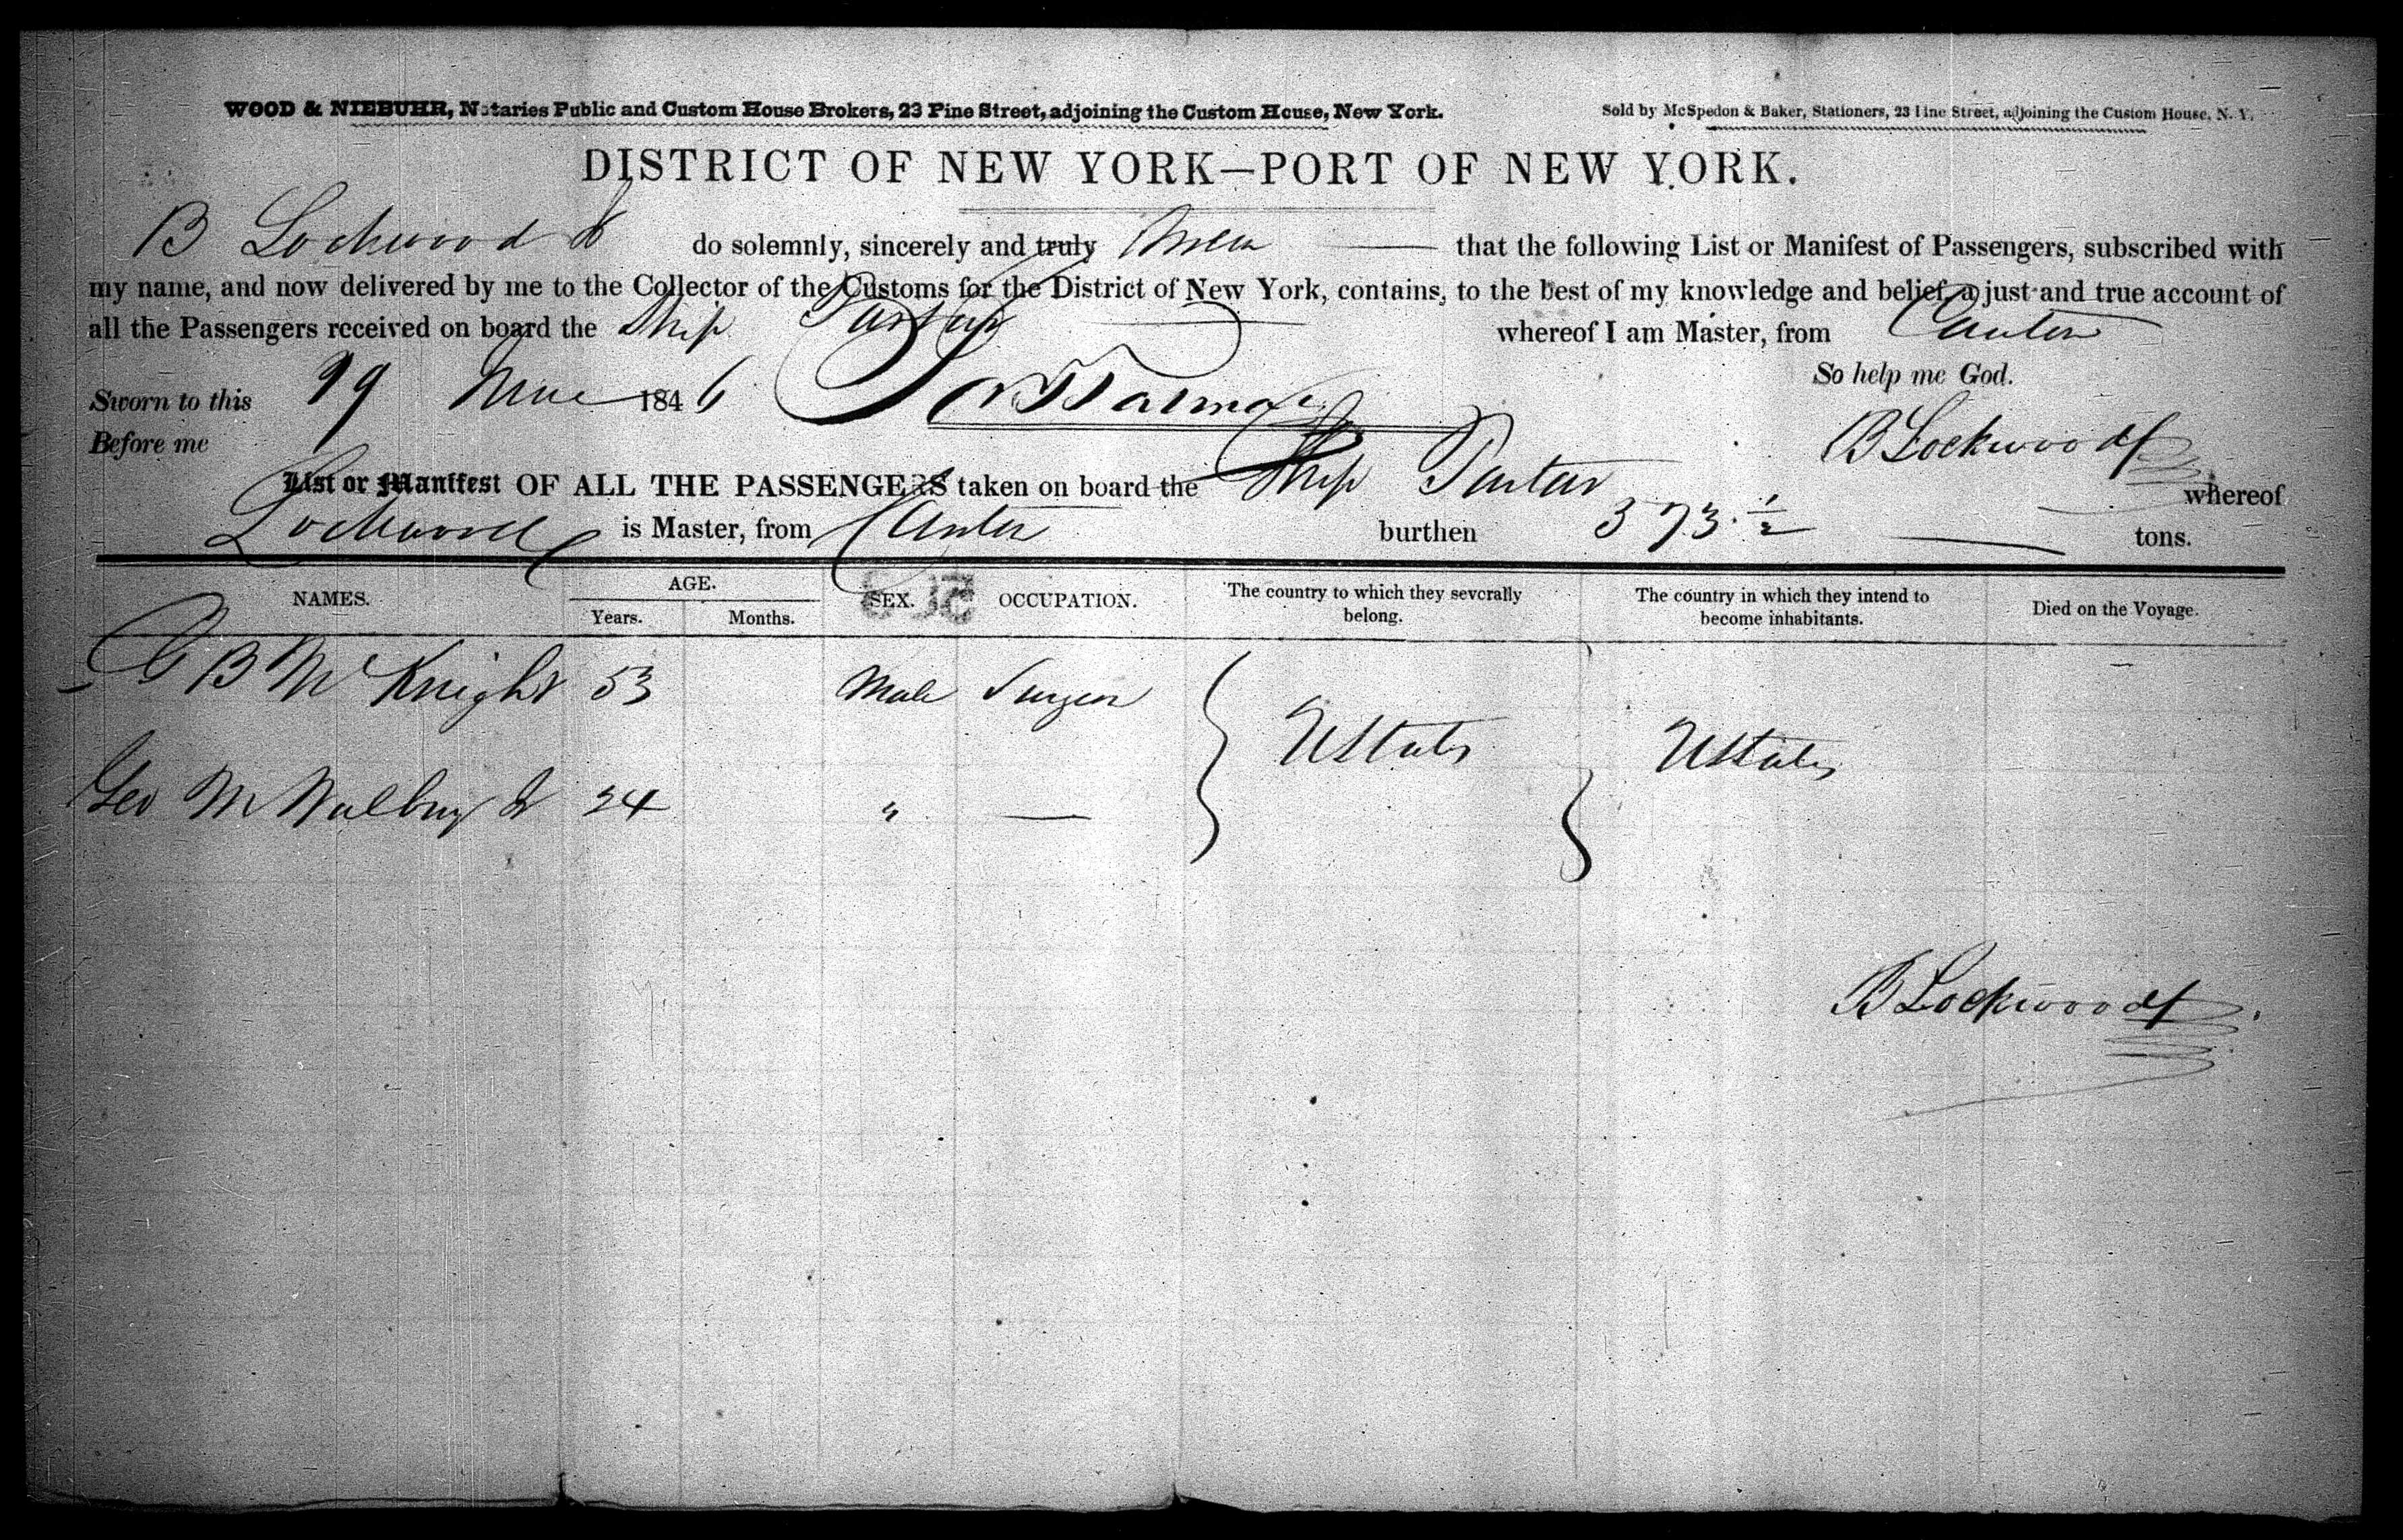 WOOD & NIEBUHR, Notaries Public and Custom House Brokers, 23 Pine Street, adjoining the Custom House, New York.
Sold by McSpedon & Baker, Stationers, 23 Pine Street, adjoining the Custom House, N. Y.
DISTRICT OF NEW YORK—PORT OF NEW YORK.
B Lockwood do solemnly, sincerely and truly that the following List or Manifest of Passengers, subscribed with
my name, and now delivered by me to the Collector of the Customs for the District of New York, contains, to the best of my knowledge and belief, a just and true account of
all the Passengers received on board the Ship Tartar whereof I am Master, from Canton
So help me God.
Sworn to this 19 184 6
Before me
B Lockwood
List or Manifest OF ALL THE PASSENGERS taken on board the Ship Tartar whereof
Lockwood is Master, from Canton burthen 373 1/2 tons.
NAMES. AGE. SEX. OCCUPATION. The country to which they severally belong. The country in which they intend to become inhabitants. Died on the Voyage.
Years. Months.
B McKnight 53 Male Surgeon UStates UStates
Geo M 24 " —
B Lockwood